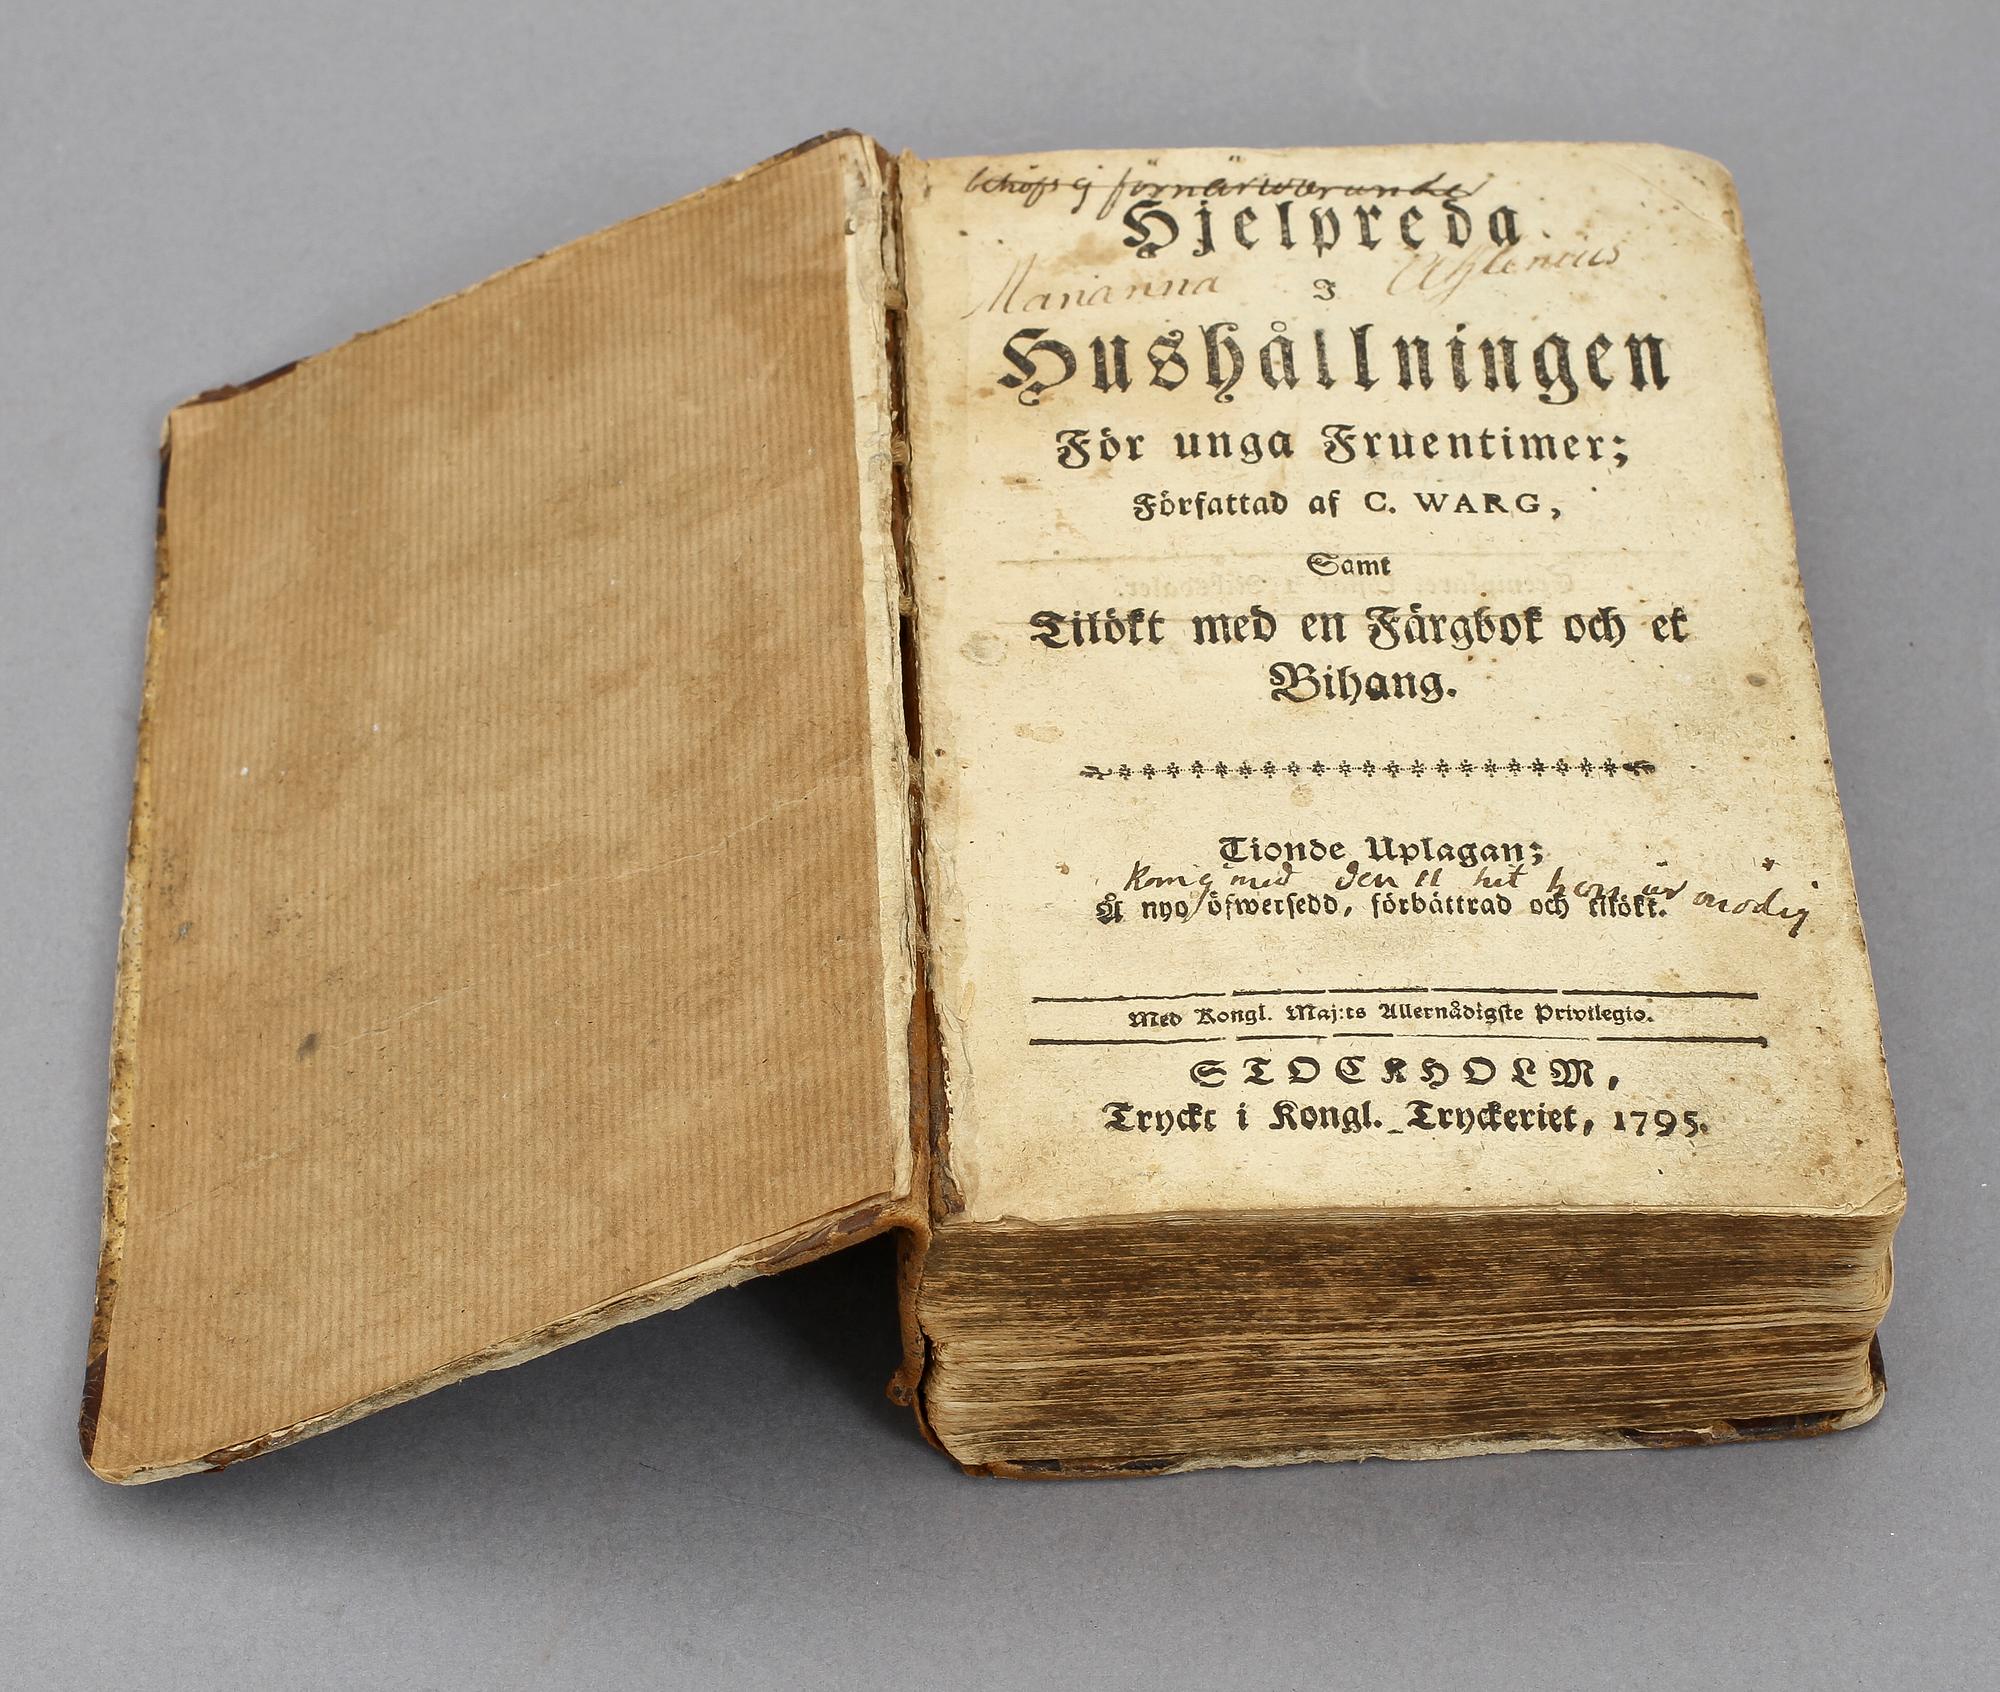 behöfs ej förnärwarande
Hjelpreda
Marianna
I
Hushållningen
För unga Fruentimer;
Författad af C. WARG,
Samt
Tilökt med en Färgbok och et
Bihang.
Tionde Uplagan;
med den
Å nyo öfwersedd, förbättrad och tilökt.
Med Kongl. Maj:ts Allernådigste Privilegio.
STOCKHOLM,
Tryckt i Kongl. Tryckeriet, 1795.